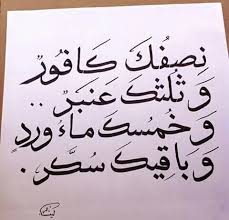 نِصفُكَ كافُورٌ
وَثُلثكَ عَنبَرٌ ..
وَخُمسُكَ ماءُ وَردٍ
وَبَاقِيكَ سُكَّر .